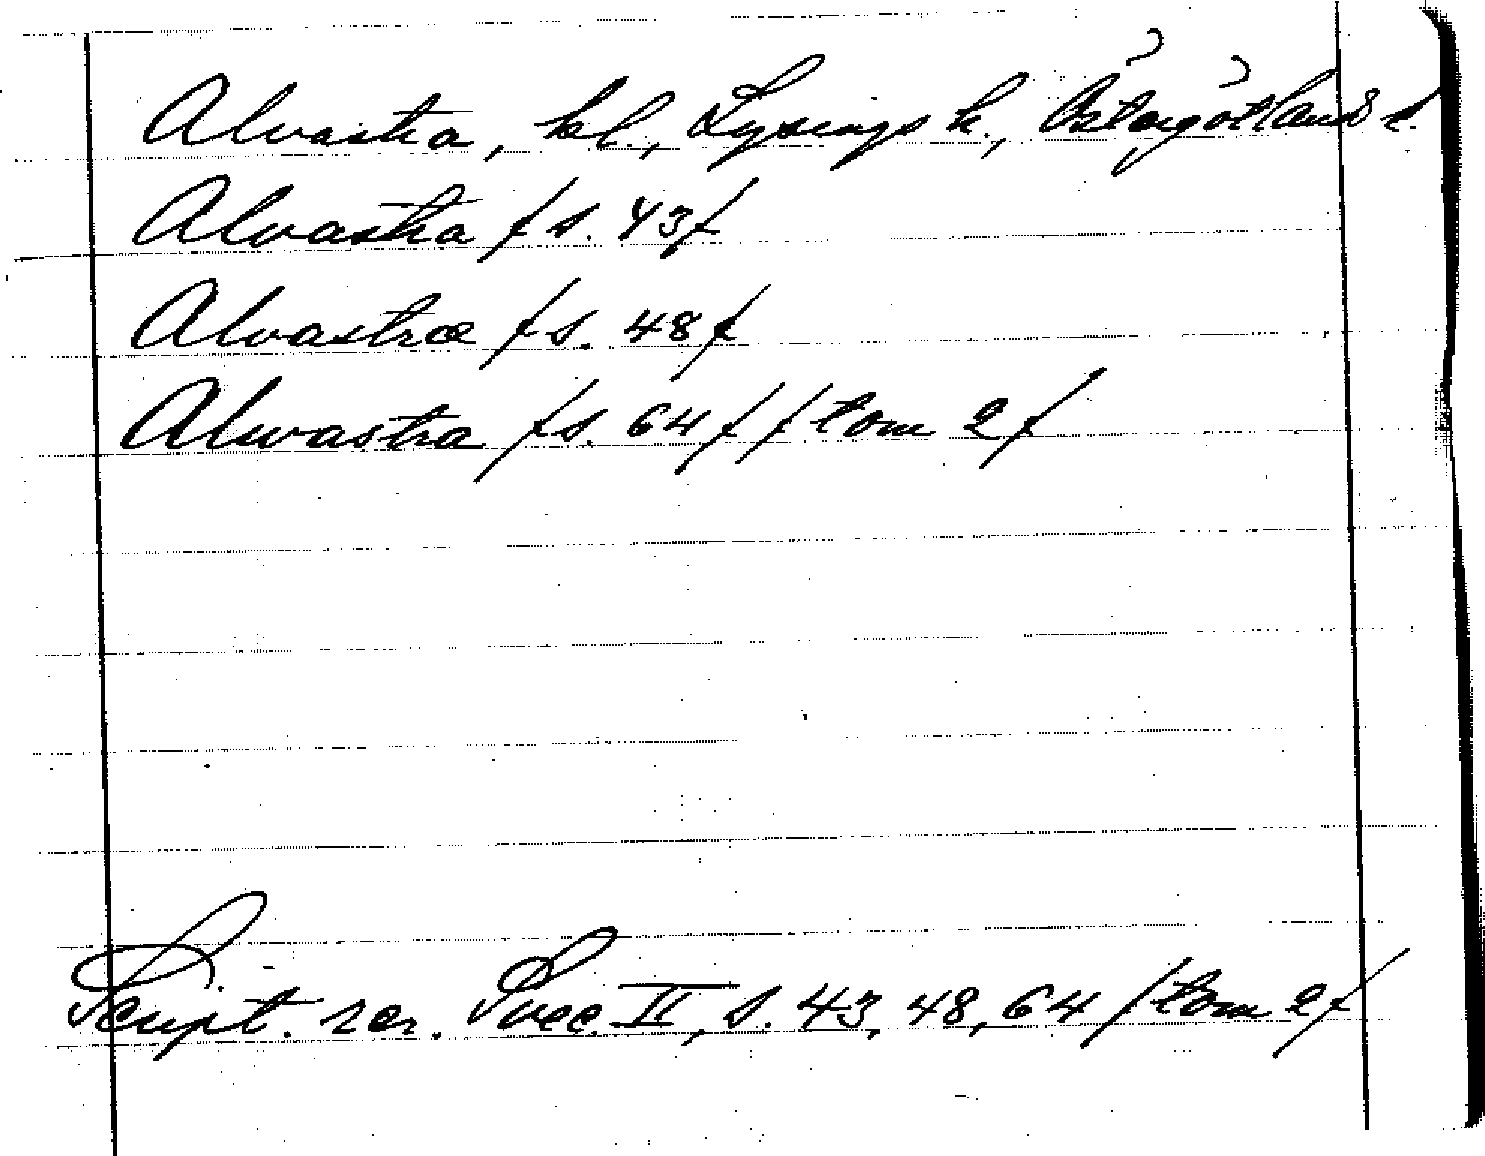 Alvastra, kl., Lysings h., Östergötlands l.
Alvastra /s. 43/
Alvastra /s. 48/
Alwastra /s. 64/ /tom 2/
Script. rer. Svec. II, s. 43, 48, 64 /tom 2/